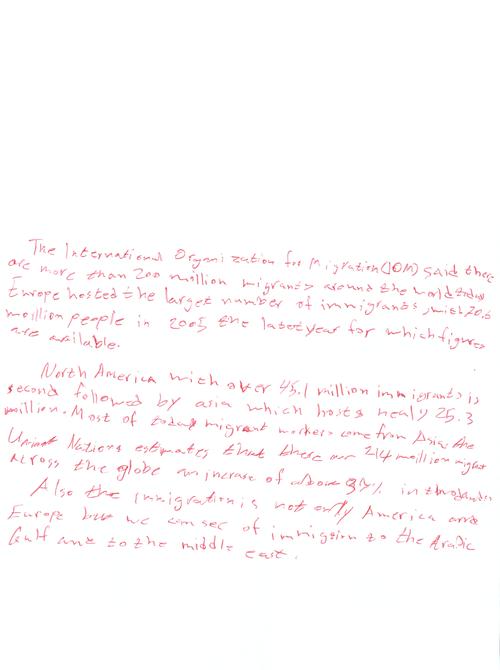 The International Organization for Migration (IOM) said there
are more than 200 million migrants around the world today
Europe hosted the larget number of immigrants, with 70.6
million people in 2005 the latest year for which figures
are available.
North America with over 45.1 million immigrants is
second followed by asia which hosts nealy 25.3
million. Most of today migrant workers come from Asia the
Nations estimates that there 214 million migrant
across the globe an increase of above 37% in
Also the immigration is not only America and
Europe but we can see of immigrtion to the Arabic
Gulf and to the middle east.